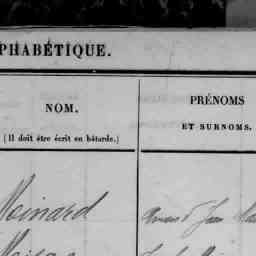 PHABÉTIQUE.
NOM.
(Il doit être écrit en bâtarde.)
PRÉNOMS
ET SURNOMS.
Moinard
Jean